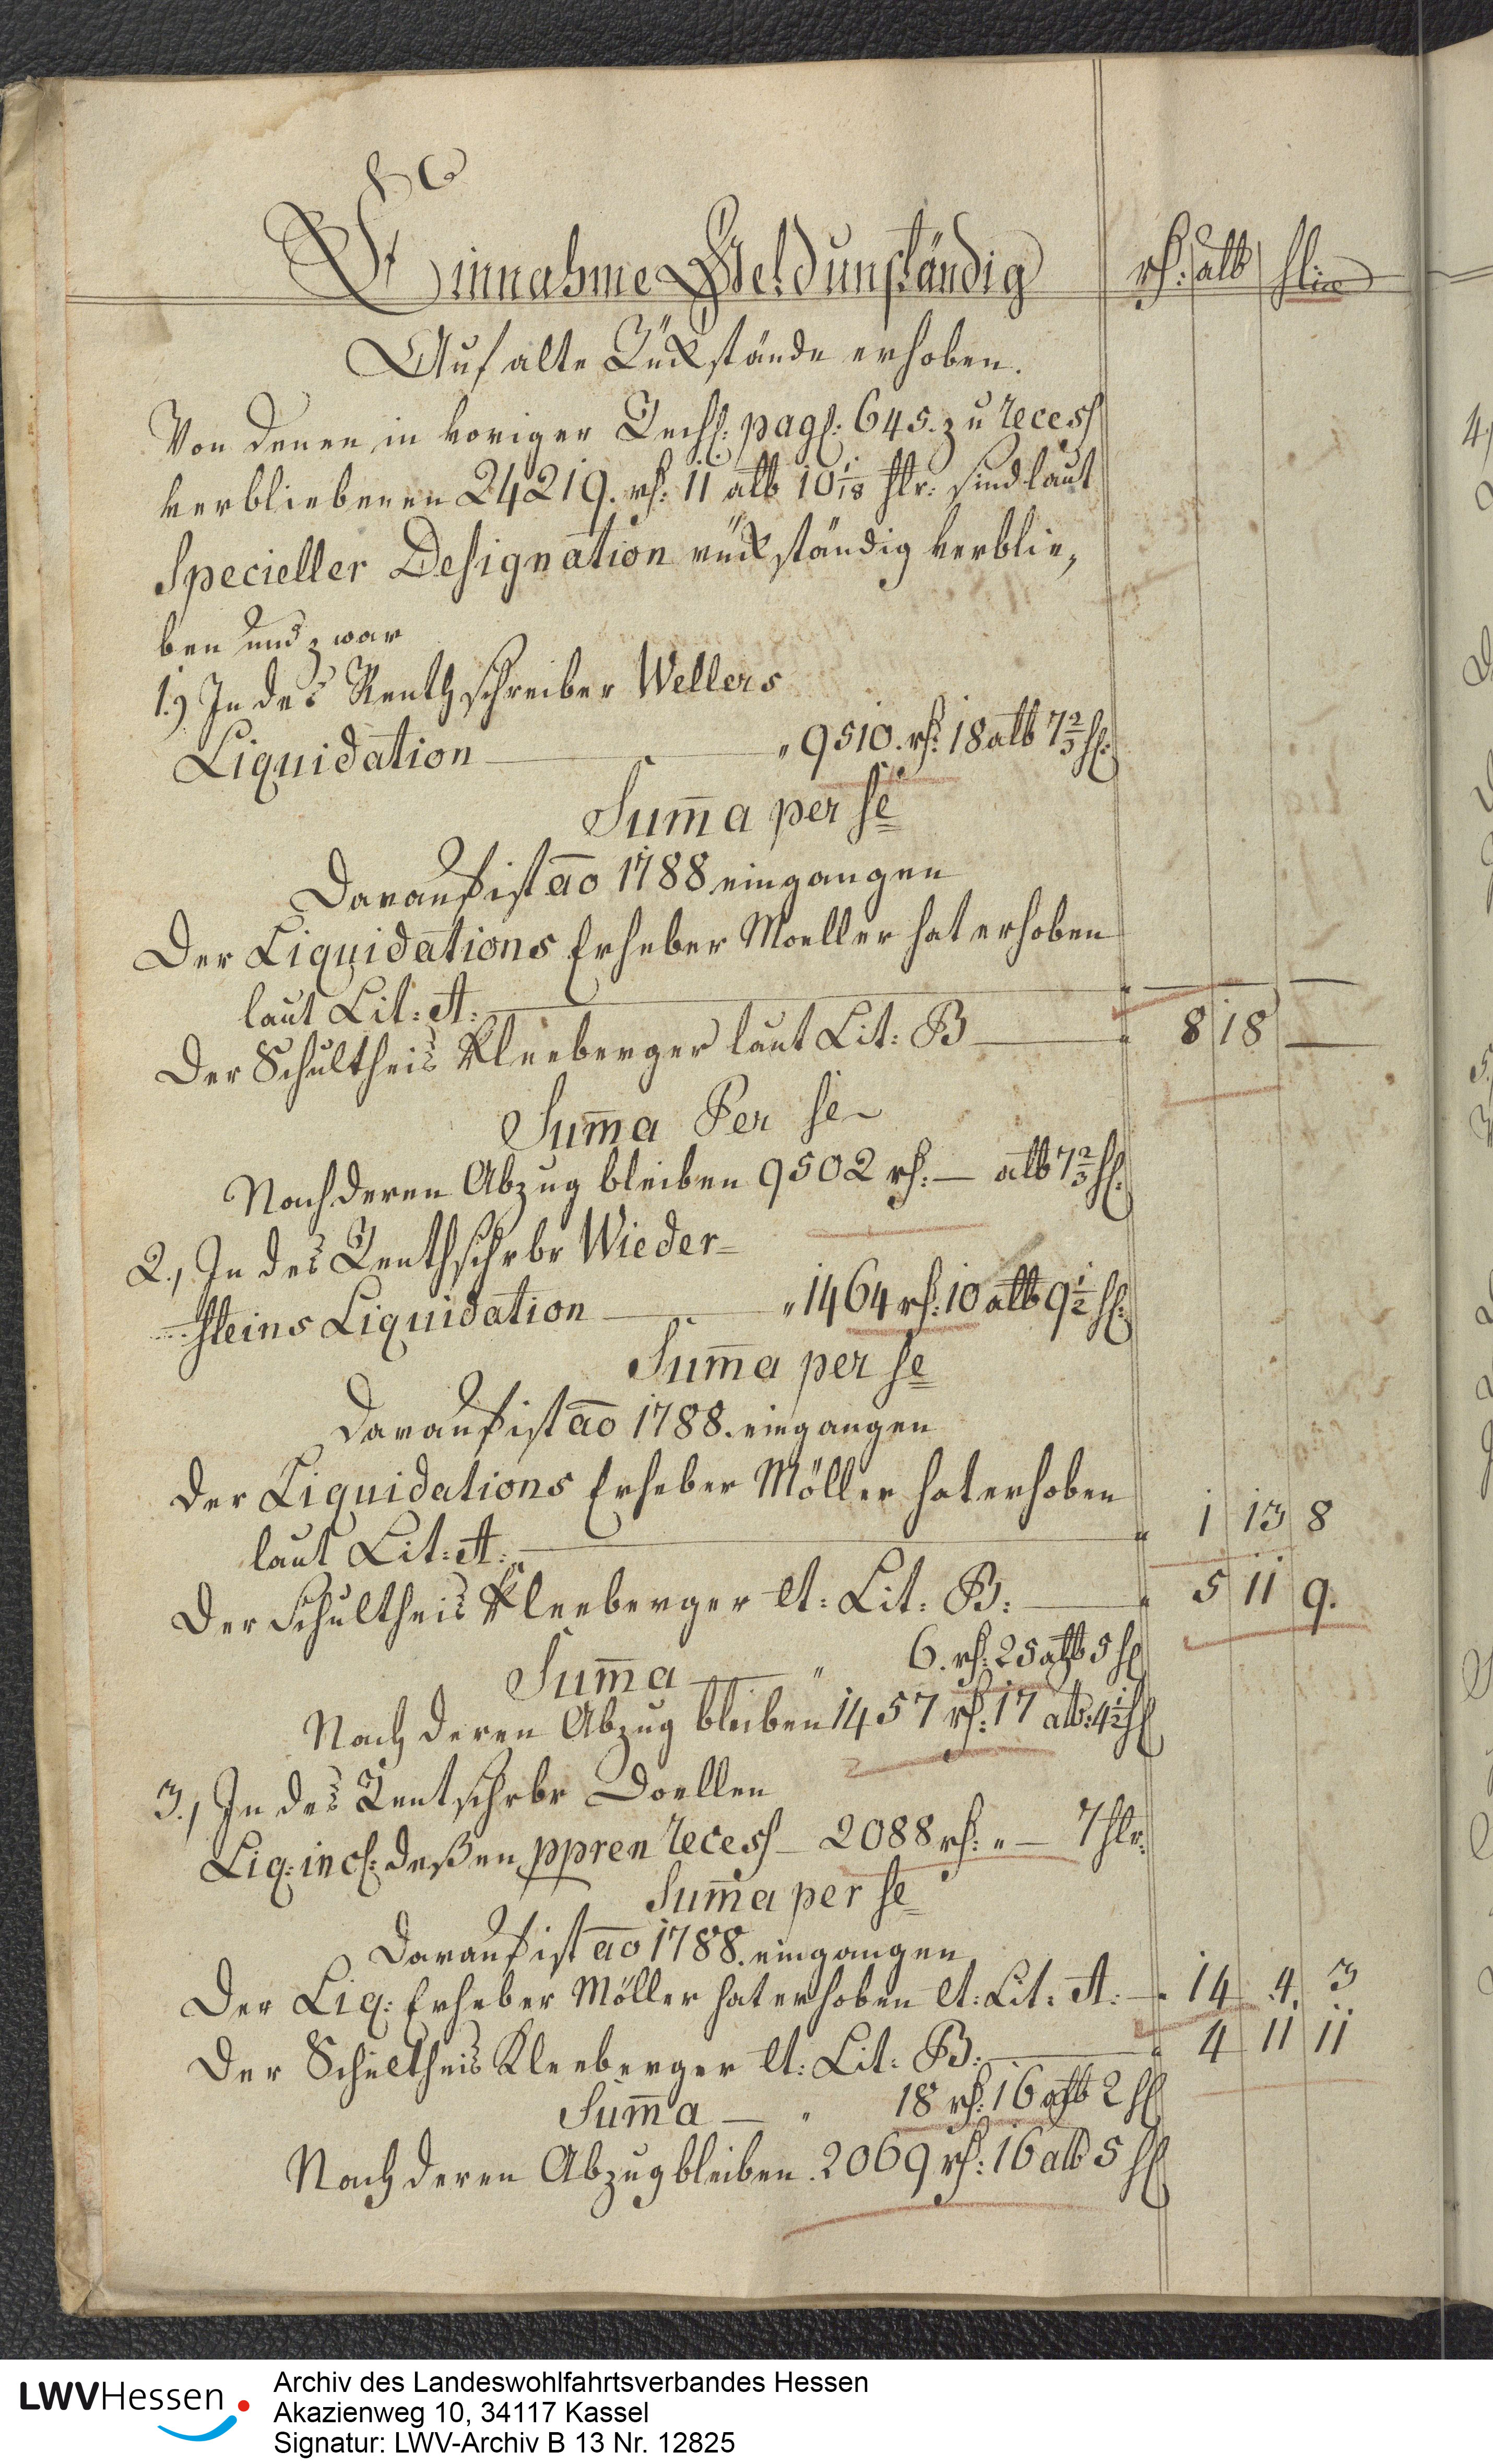 Einnahme Geld unständig
rh: alb hlr
Auf alte Rückstände erhoben.
Von denen in voriger Rech: pag: 645. zu recess
verbliebenen 24219. rh: 11 alb 10 1/18 hlr: sind laut
Specieller Designation rückständig verblie,
ben und zwar
1.) In des Renthschreiber Wellers
Liquidation " 9510. rh: 18 alb 7 2/3 hl:
Sum̄a per se
Darauf ist ao 1788 eingangen
Der Liquidations Erheber Moeller hat erhoben
laut Lit: A: " — — —
Der Schultheis Kleeberger laut Lit: B — " 8 18 —
Sum̄a Per se
Nach deren Abzug bleiben 9502 rh: — alb 7 2/3 hl:
2., In des Renthschrbr Wieder=
steins Liquidation — " 1464 rh: 10 alb 9 1/2 hl:
Sum̄a per se
Darauf ist ao 1788. eingangen
der Liquidations Erheber Möller hat erhoben
laut Lit: A: — " 1 13 8
Der Schultheis Kleeberger lt: Lit: B: — " 5 11 9.
Sum̄a — " 6. rh: 25 alb 5 hl
Nach deren Abzug bleiben 1457 rh: 17 alb: 4 1/2 hl
3., In des Rentschrbr Doellen
Liq: incl: deßen ppren recess — 2088 rh: " — 7 hlr:
Sum̄a per se
Darauf ist ao 1788. eingangen
Der Liq: Erheber Möller hat erhoben lt: Lit: A: — " 14 4. 3
Der Schultheis Kleeberger lt: Lit: B: — " 4 11 11
Sum̄a — " 18 rh: 16 alb 2 hl
Nach deren Abzug bleiben. 2069 rh: 16 alb 5 hl
LWVHessen
Archiv des Landeswohlfahrtsverbandes Hessen
Akazienweg 10, 34117 Kassel
Signatur: LWV-Archiv B 13 Nr. 12825